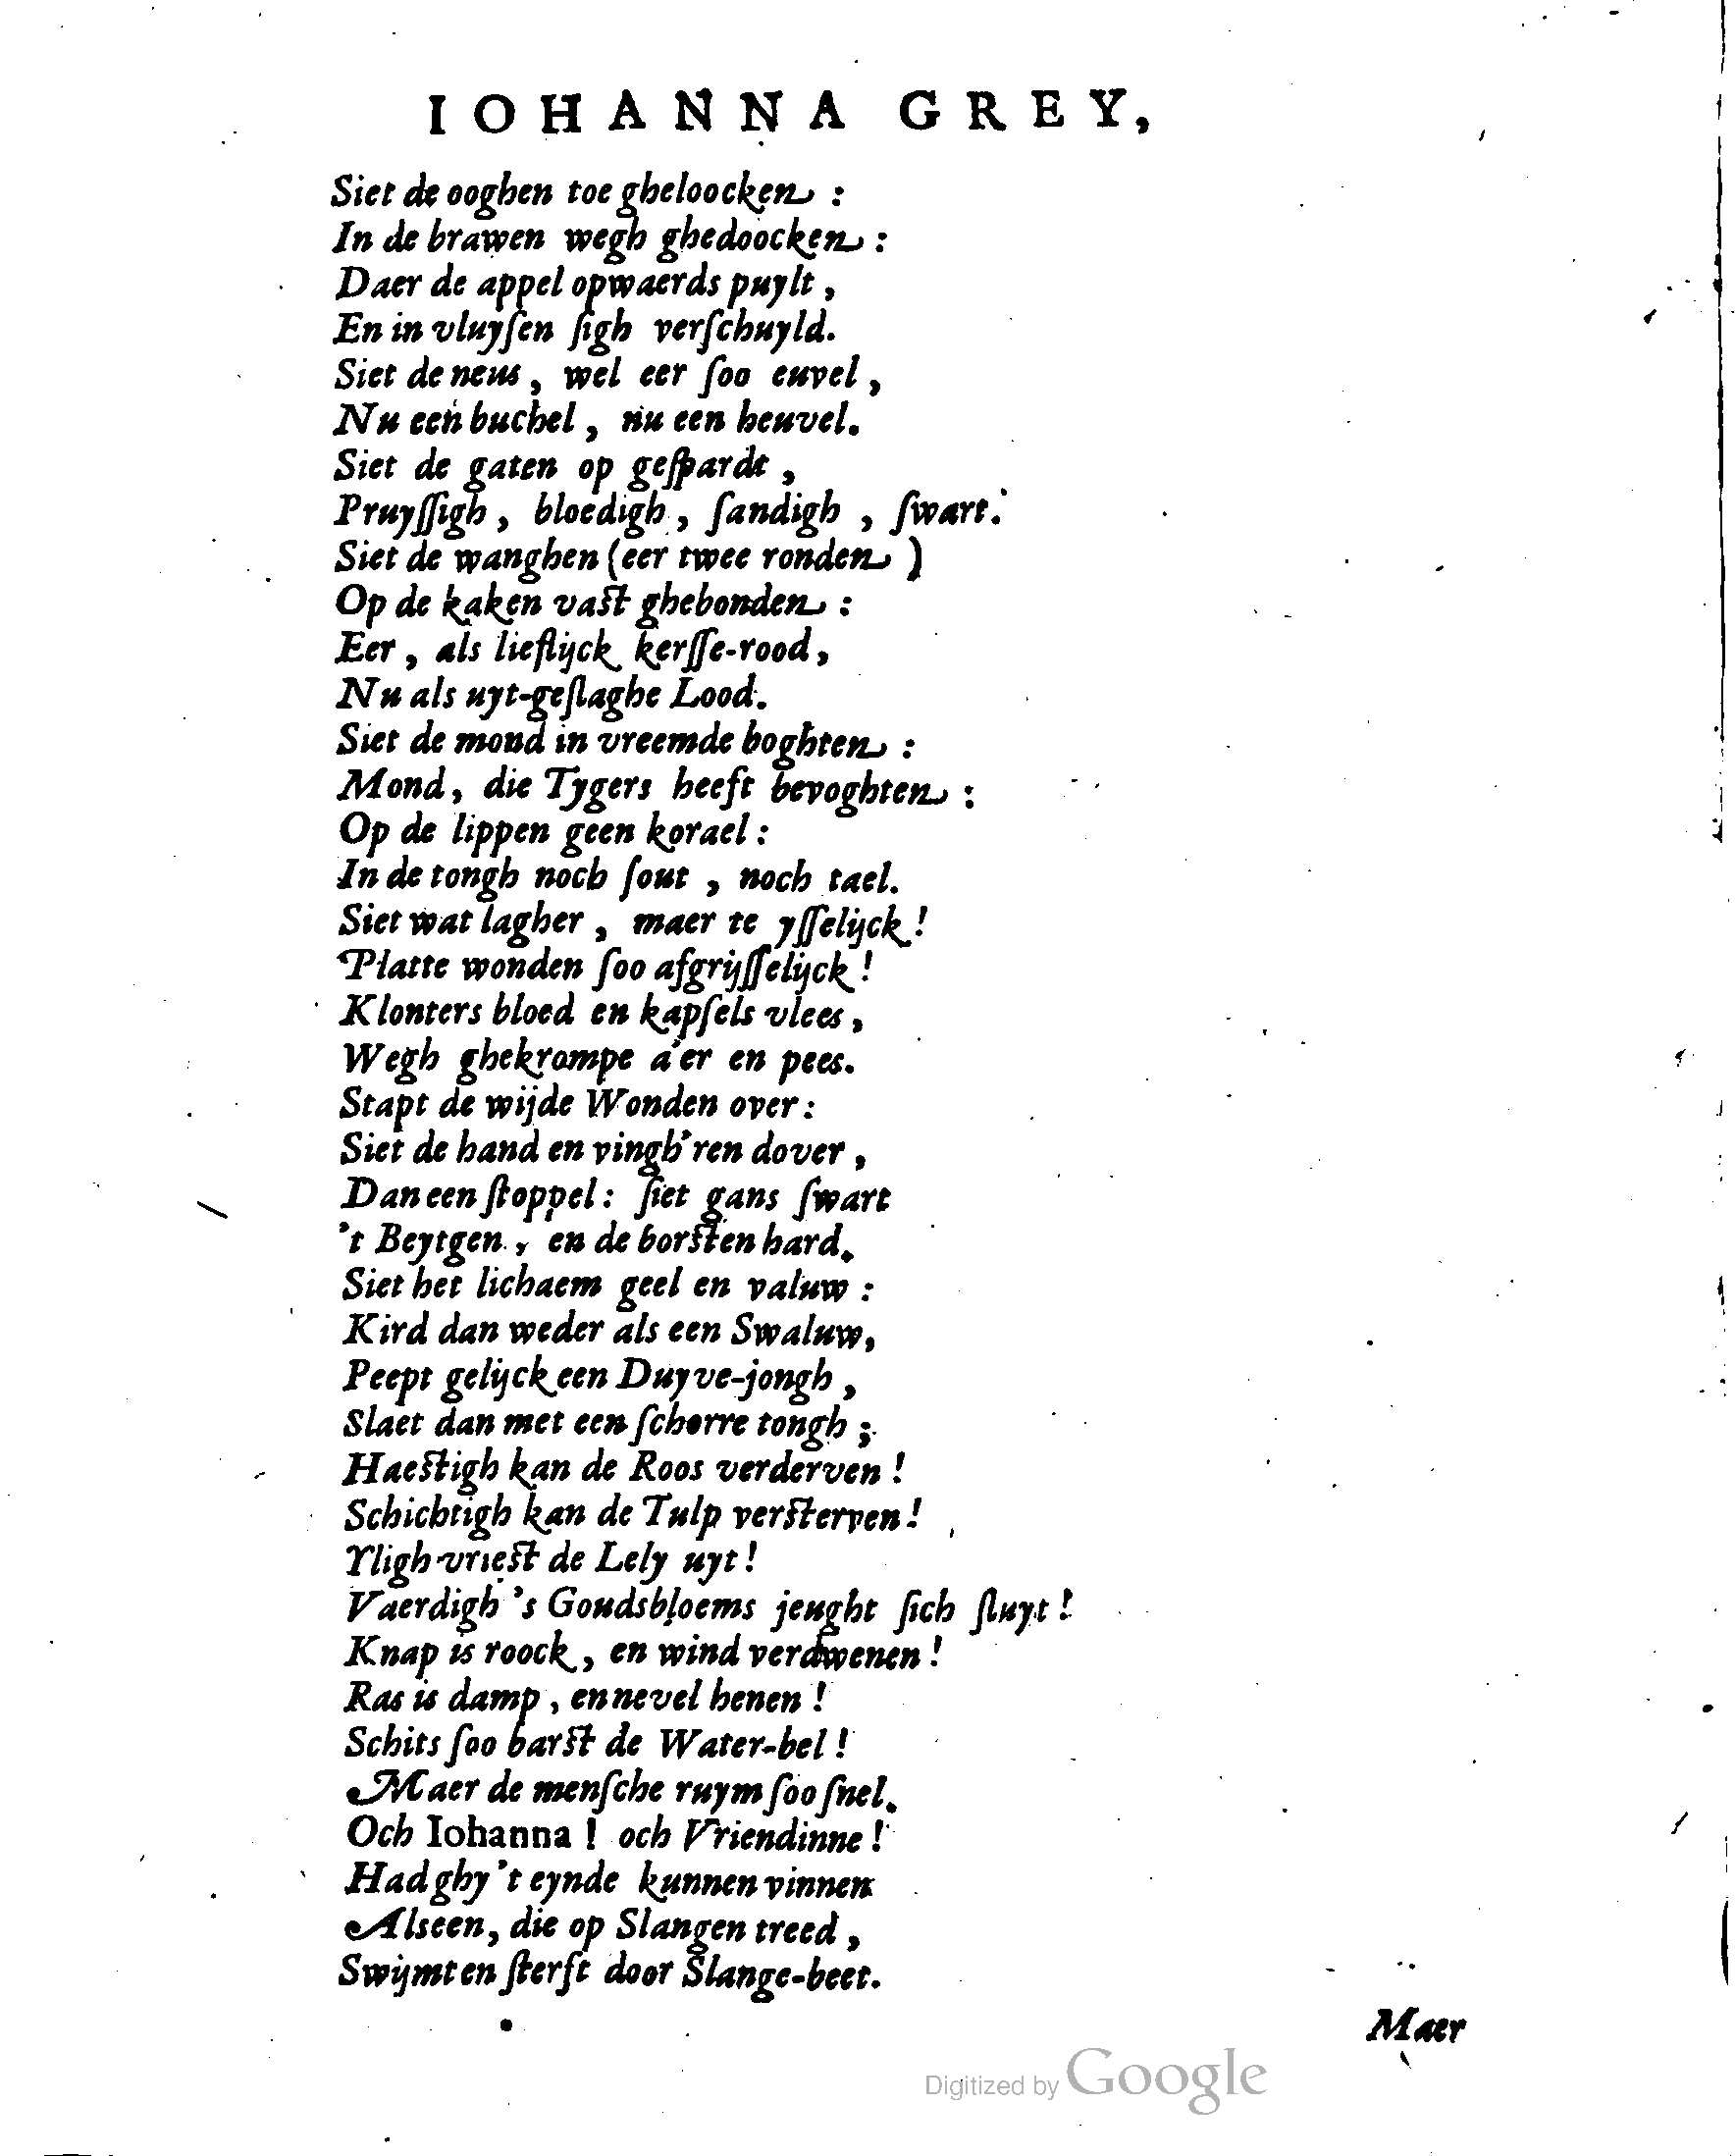 IOHANNA GREY,
Siet de ooghen toe gheloocken :
In de brawen wegh ghedoocken :
Daer de appel opwaerds puylt ,
En in vluyſen ſigh verſchuyld.
Siet de neus , wel eer ſoo euvel ,
Nu een buchel , nu een heuvel.
Siet de gaten op geſpardt ,
Pruyſſigh , bloedigh , ſandigh , ſwart.
Siet de wanghen (eer twee ronden )
Op de kaken vast ghebonden :
Eer , als lieflijck kerſſe-rood ,
Nu als uyt-geſlaghe Lood.
Siet de mond in vreemde boghten :
Mond, die Tygers heeft bevoghten :
Op de lippen geen korael :
In de tongh noch ſout , noch tael.
Siet wat lagher , maer te yſſelijck !
Platte wonden ſoo afgrijſſelijck !
Klonters bloed en kapſels vlees ,
Wegh ghekrompe a'er en pees.
Stapt de wijde Wonden over :
Siet de hand en vingh'ren dover ,
Dan een ſtoppel : ſiet gans ſwart
't Beytgen , en de borsten hard.
Siet het lichaem geel en valuw :
Kird dan weder als een Swaluw,
Peept gelijck een Duyve-jongh ,
Slaet dan met een ſchorre tongh ;
Haestigh kan de Roos verderven !
Schichtigh kan de Tulp versterven !
Yligh vriest de Lely uyt !
Vaerdigh 's Goudsbloems jeught ſich ſluyt !
Knap is roock , en wind verdwenen !
Ras is damp , en nevel henen !
Schits ſoo barst de Water-bel !
Maer de menſche ruym ſoo ſnel.
Och Iohanna ! och Vriendinne !
Had ghy 't eynde kunnen vinnen
Als een, die op Slangen treed ,
Swijmt en ſterft door Slange-beet.
Maer
Digitized by Google